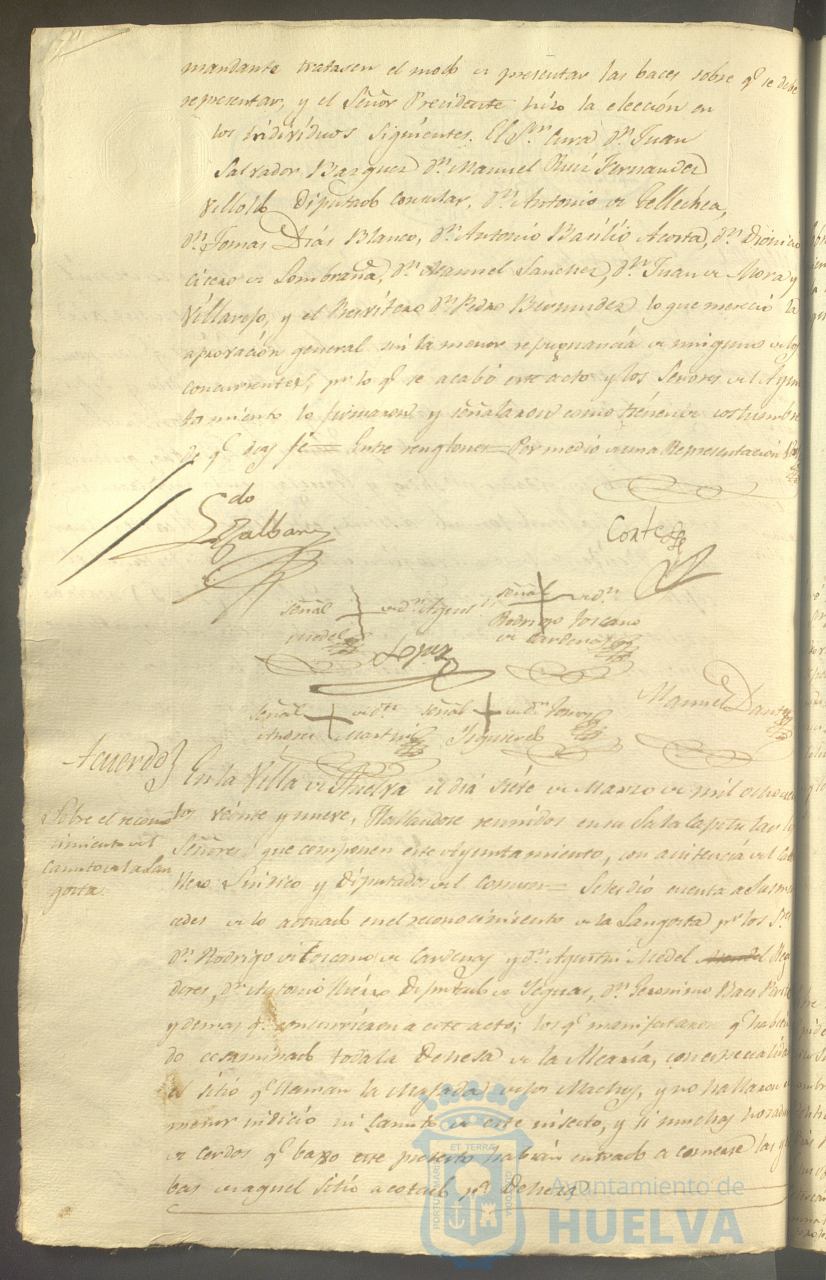 mandante tratasen el modo de presentar las baces sobre q.e se debe
representar, y el Señor Presidente hizo la elección en
los individuos siguientes. El S.or Cura d.n Juan
Salvador Bazquez d.n Manuel Ruiz Fernandez
Diputado Consular, d.n Antonio de Tellechea,
d.n Tomas Diás Blanco, d.n Antonio Basilio Acosta, d.n Dionicio
de Lombraña, d.n Manuel Sanchez, d.n Juan de Mora y
Villarejo, y el Presvitero d.n Pedro Bermudez lo que mereció la
aprovación general sin la menor repugnancia de ninguno de los
concurrentes, p.r lo q.e se acabó este acto y los Señores del Ayun
tamiento lo firmaron y señalaron como tienen de costumbre
de q.e doy fé = Entre renglones = Por medio de una Representación
Cortes
señal de d.n Agust.n
Medel
Lopez
señal de d.n
Rodrigo Toscano
de Cardenas
señal de d.n
Andres Martin
señal de d.n
Izquierdo
Manuel
Acuerdo
Sobre el recono
cimiento del
Canuto de la Lan
gosta
En la Villa de Huelva el diá siéte de Marzo de mil ochocien
tos veinte y nueve, Hallandose reunidos en su Sala Capitular los
Señores que componen este Ayuntamiento, con asistencia del Cab
llero Sindico y Diputados del Comun = Se les dió cuenta a sus mer
cedes de lo actuado en el reconocimiento de la Langosta p.r los S.res
d.n Rodrigo Toscano de Cardenas y d.n Agustin Medel Regi
dores, d.n Antonio Diputado de Yeguas, d.n Geronimo Baes
y demas q.e concurrieron a este acto; los q.e manifestaron q.e habien
do ecsaminado toda la Dehesa de la Alcaría, con especialidad
el sitio q.e llaman la Majada de los Machos, y no hallaron el
menor indicio ni Canuto de este insecto, y si muchas
de cerdos q.e baxo este pretesto habian entrado a comerse las yer
bas de aquel Sitio acotado p.r Dehesa
ET TERRAE
Ayuntamiento de
HUELVA